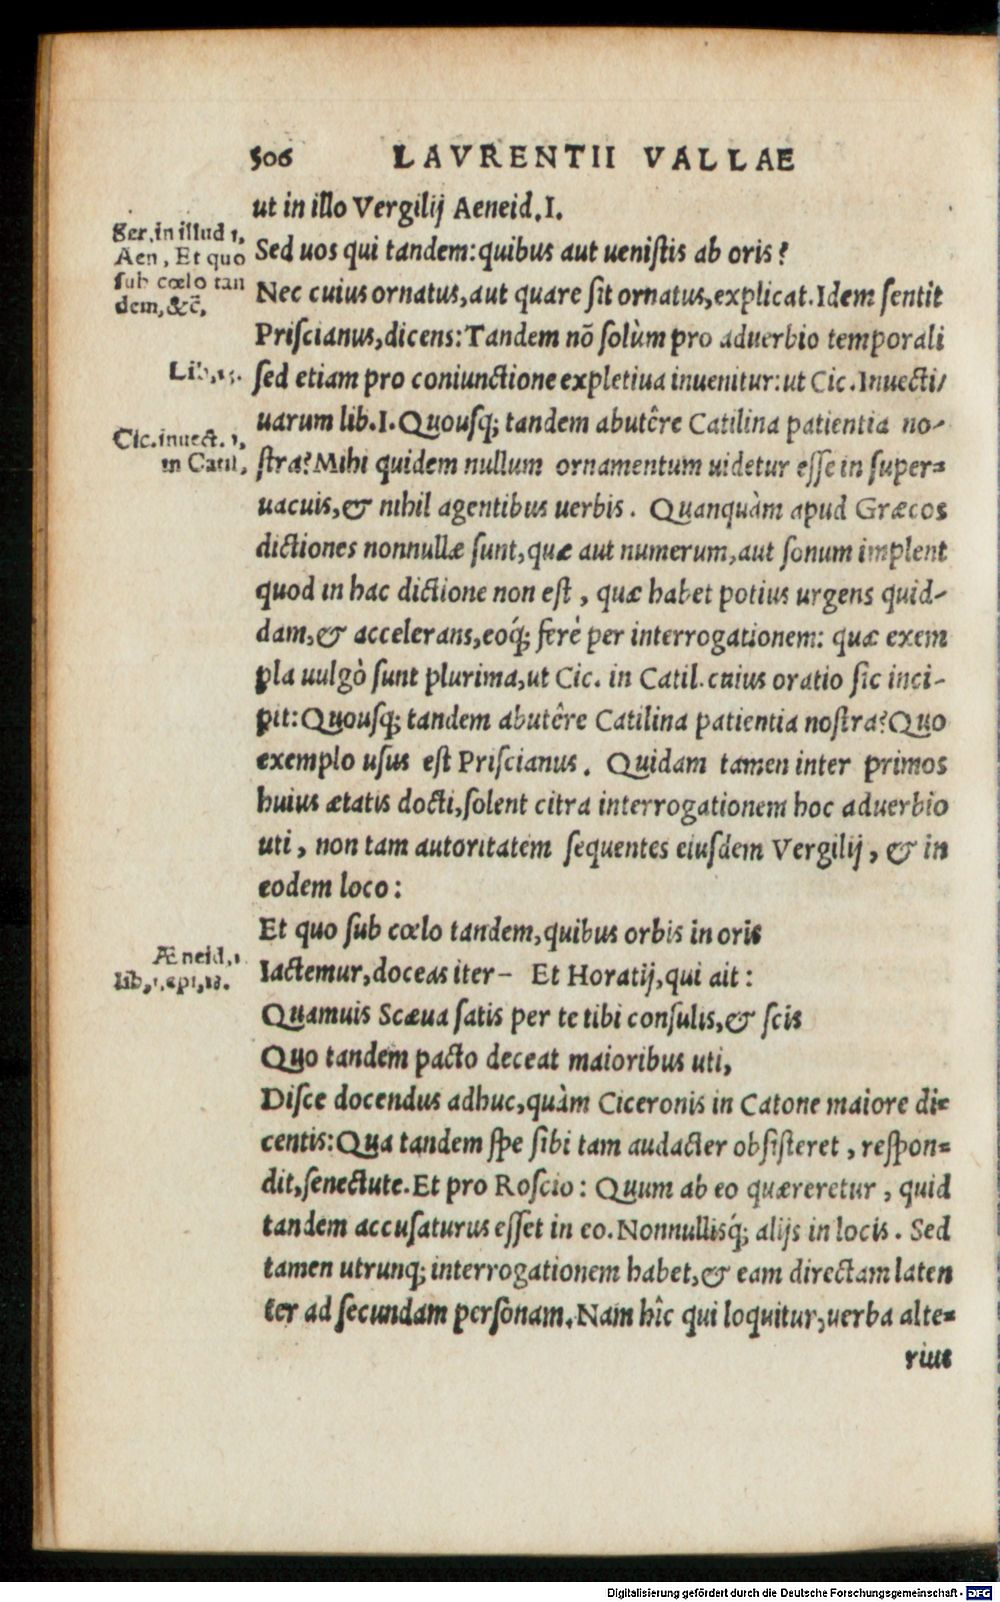 506 LAVRENTII VALLAE
ut in illo Vergilij Aeneid.I.
Ser.in illud 1.
Aen, Et quo
sub cœlo tan
dem,&c̃.
Sed uos qui tandem:quibus aut ueniſtis ab oris?
Nec cuius ornatus,aut quare ſit ornatus,explicat.Idem ſentit
Priſcianus,dicens:Tandem nõ ſolùm pro aduerbio temporali
Lib,15.
ſed etiam pro coniunctione expletiua inuenitur:ut Cic.Inuecti/
uarum lib.I.Quouſq; tandem abutêre Catilina patientia no-
Cic.inuect. 1,
in Catil,
ſtra?Mihi quidem nullum ornamentum uidetur eſſe in ſuper=
uacuis,& nihil agentibus uerbis. Quanquàm apud Græcos
dictiones nonnullæ ſunt,quæ aut numerum,aut ſonum implent
quod in hac dictione non eſt, quæ habet potius urgens quid-
dam,& accelerans,eoq́; ferè per interrogationem: quæ exem
pla uulgò ſunt plurima,ut Cic. in Catil.cuius oratio ſic inci-
pit:Quouſq; tandem abutêre Catilina patientia noſtra?Quo
exemplo uſus eſt Priſcianus. Quidam tamen inter primos
huius ætatis docti,ſolent citra interrogationem hoc aduerbio
uti, non tam autoritatem ſequentes eiuſdem Vergilij, & in
eodem loco:
Et quo ſub cœlo tandem,quibus orbis in oris
Æneid,1
lib,1,epi,18.
Iactemur,doceas iter- Et Horatij,qui ait:
Quamuis Scæua ſatis per te tibi conſulis,& ſcis
Quo tandem pacto deceat maioribus uti,
Diſce docendus adhuc,quàm Ciceronis in Catone maiore di=
centis:Qua tandem ſpe ſibi tam audacter obſiſteret, reſpon=
dit,ſenectute.Et pro Roſcio: Quum ab eo quæreretur, quid
tandem accuſaturus eſſet in eo.Nonnulliſq́; alijs in locis. Sed
tamen utrunq; interrogationem habet,& eam directam laten
ter ad ſecundam perſonam.Nam hîc qui loquitur,uerba alte=
rius
Digitalisierung gefördert durch die Deutsche Forschungsgemeinschaft - DFG